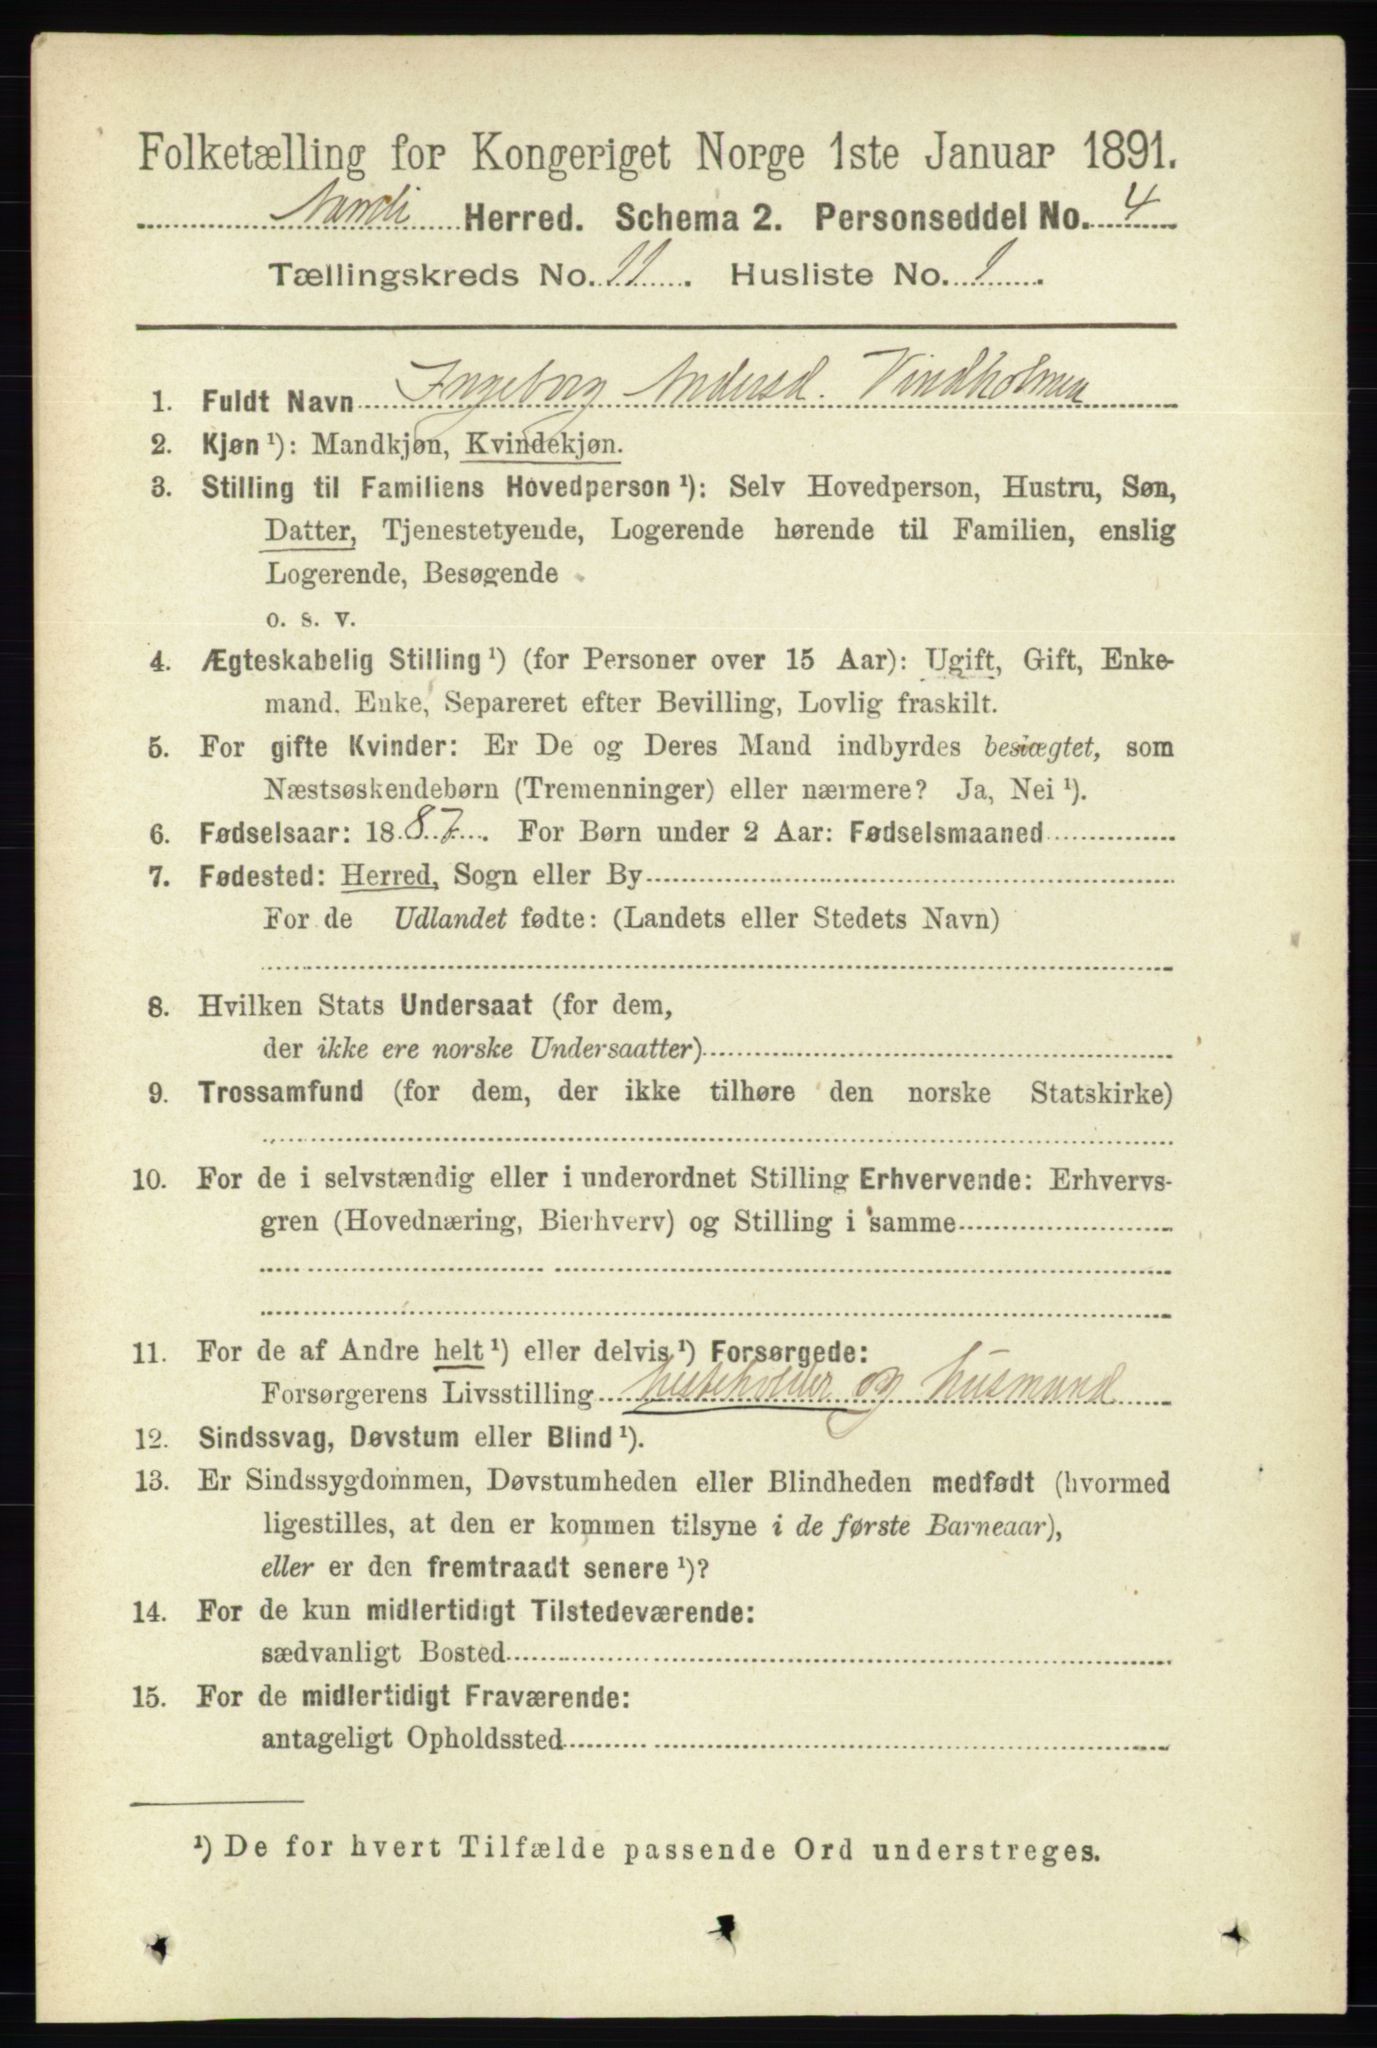 Folketælling for Kongeriget Norge 1ste Januar 1891.
Herred. Schema 2. Personseddel No. 4
Tællingskreds No. 11. Husliste No. 1.
1. Fuldt Navn Ingeborg Andersd. Vindholmen
2. Kjøn ¹): Mandkjøn, Kvindekjøn.
3. Stilling til Familiens Hovedperson ¹): Selv Hovedperson, Hustru, Søn,
Datter, Tjenestetyende, Logerende hørende til Familien, enslig
Logerende, Besøgende
o. s. v.
4. Ægteskabelig Stilling ¹) (for Personer over 15 Aar): Ugift, Gift, Enke-
mand, Enke, Separeret efter Bevilling, Lovlig fraskilt.
5. For gifte Kvinder: Er De og Deres Mand indbyrdes beslægtet, som
Næstsøskendebørn (Tremenninger) eller nærmere? Ja, Nei ¹).
6. Fødselsaar: 1887. For Børn under 2 Aar: Fødselsmaaned
7. Fødested: Herred, Sogn eller By
For de Udlandet fødte: (Landets eller Stedets Navn)
8. Hvilken Stats Undersaat (for dem,
der ikke ere norske Undersaatter)
9. Trossamfund (for dem, der ikke tilhøre den norske Statskirke)
10. For de i selvstændig eller i underordnet Stilling Erhvervende: Erhvervs-
gren (Hovednæring, Bierhverv) og Stilling i samme
11. For de af Andre helt ¹) eller delvis ¹) Forsørgede:
Forsørgerens Livsstilling og husmand
12. Sindssvag, Døvstum eller Blind ¹).
13. Er Sindssygdommen, Døvstumheden eller Blindheden medfødt (hvormed
ligestilles, at den er kommen tilsyne i de første Barneaar),
eller er den fremtraadt senere ¹)?
14. For de kun midlertidigt Tilstedeværende:
sædvanligt Bosted
15. For de midlertidigt Fraværende:
antageligt Opholdssted
¹) De for hvert Tilfælde passende Ord understreges.